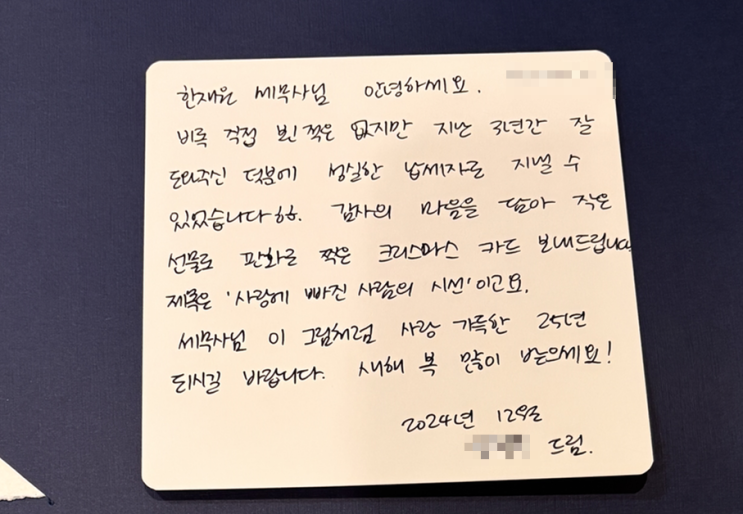 한재은 세무사님 안녕하세요.
비록 직접 뵌 적은 없지만 지난 3년간 잘
도와주신 덕분에 성실한 납세자로 지낼 수
있었습니다ㅎㅎ. 감사의 마음을 담아 작은
선물로 판화로 찍은 크리스마스 카드 보내드립니다.
제목은 '사랑에 빠진 사람의 시선'이고요.
세무사님 이 그림처럼 사랑 가득한 25년
되시길 바랍니다. 새해 복 많이 받으세요!
2024년 12월
드림.